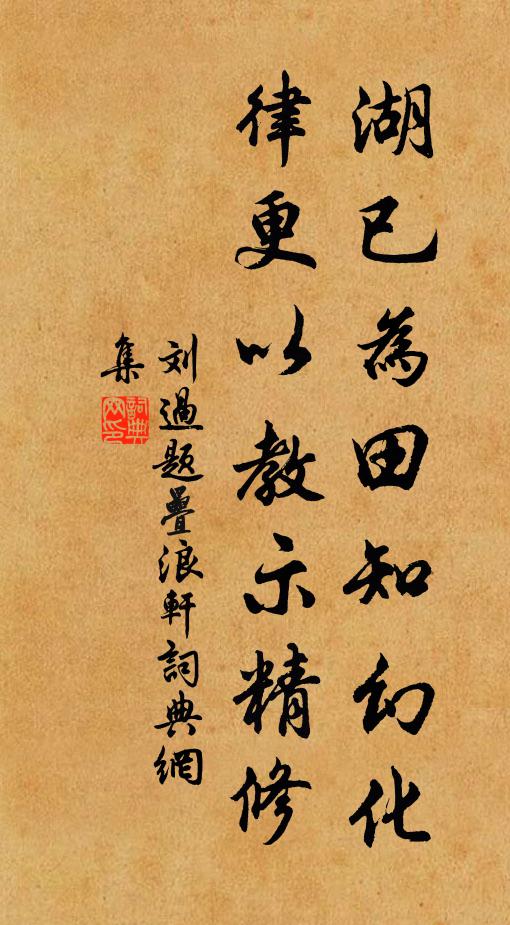 湖已為田知幻化
律更以教示精修
刘過題疊浪軒詞典網
集
詞典网印